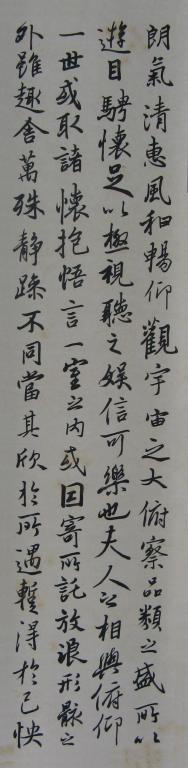 朗氣清惠風和暢仰觀宇宙之大俯察品類之盛所以
遊目騁懷足以極視聽之娛信可樂也夫人之相與俯仰
一世或取諸懷抱悟言一室之內或因寄所託放浪形骸之
外雖趣舍萬殊靜躁不同當其欣於所遇暫得於己怏